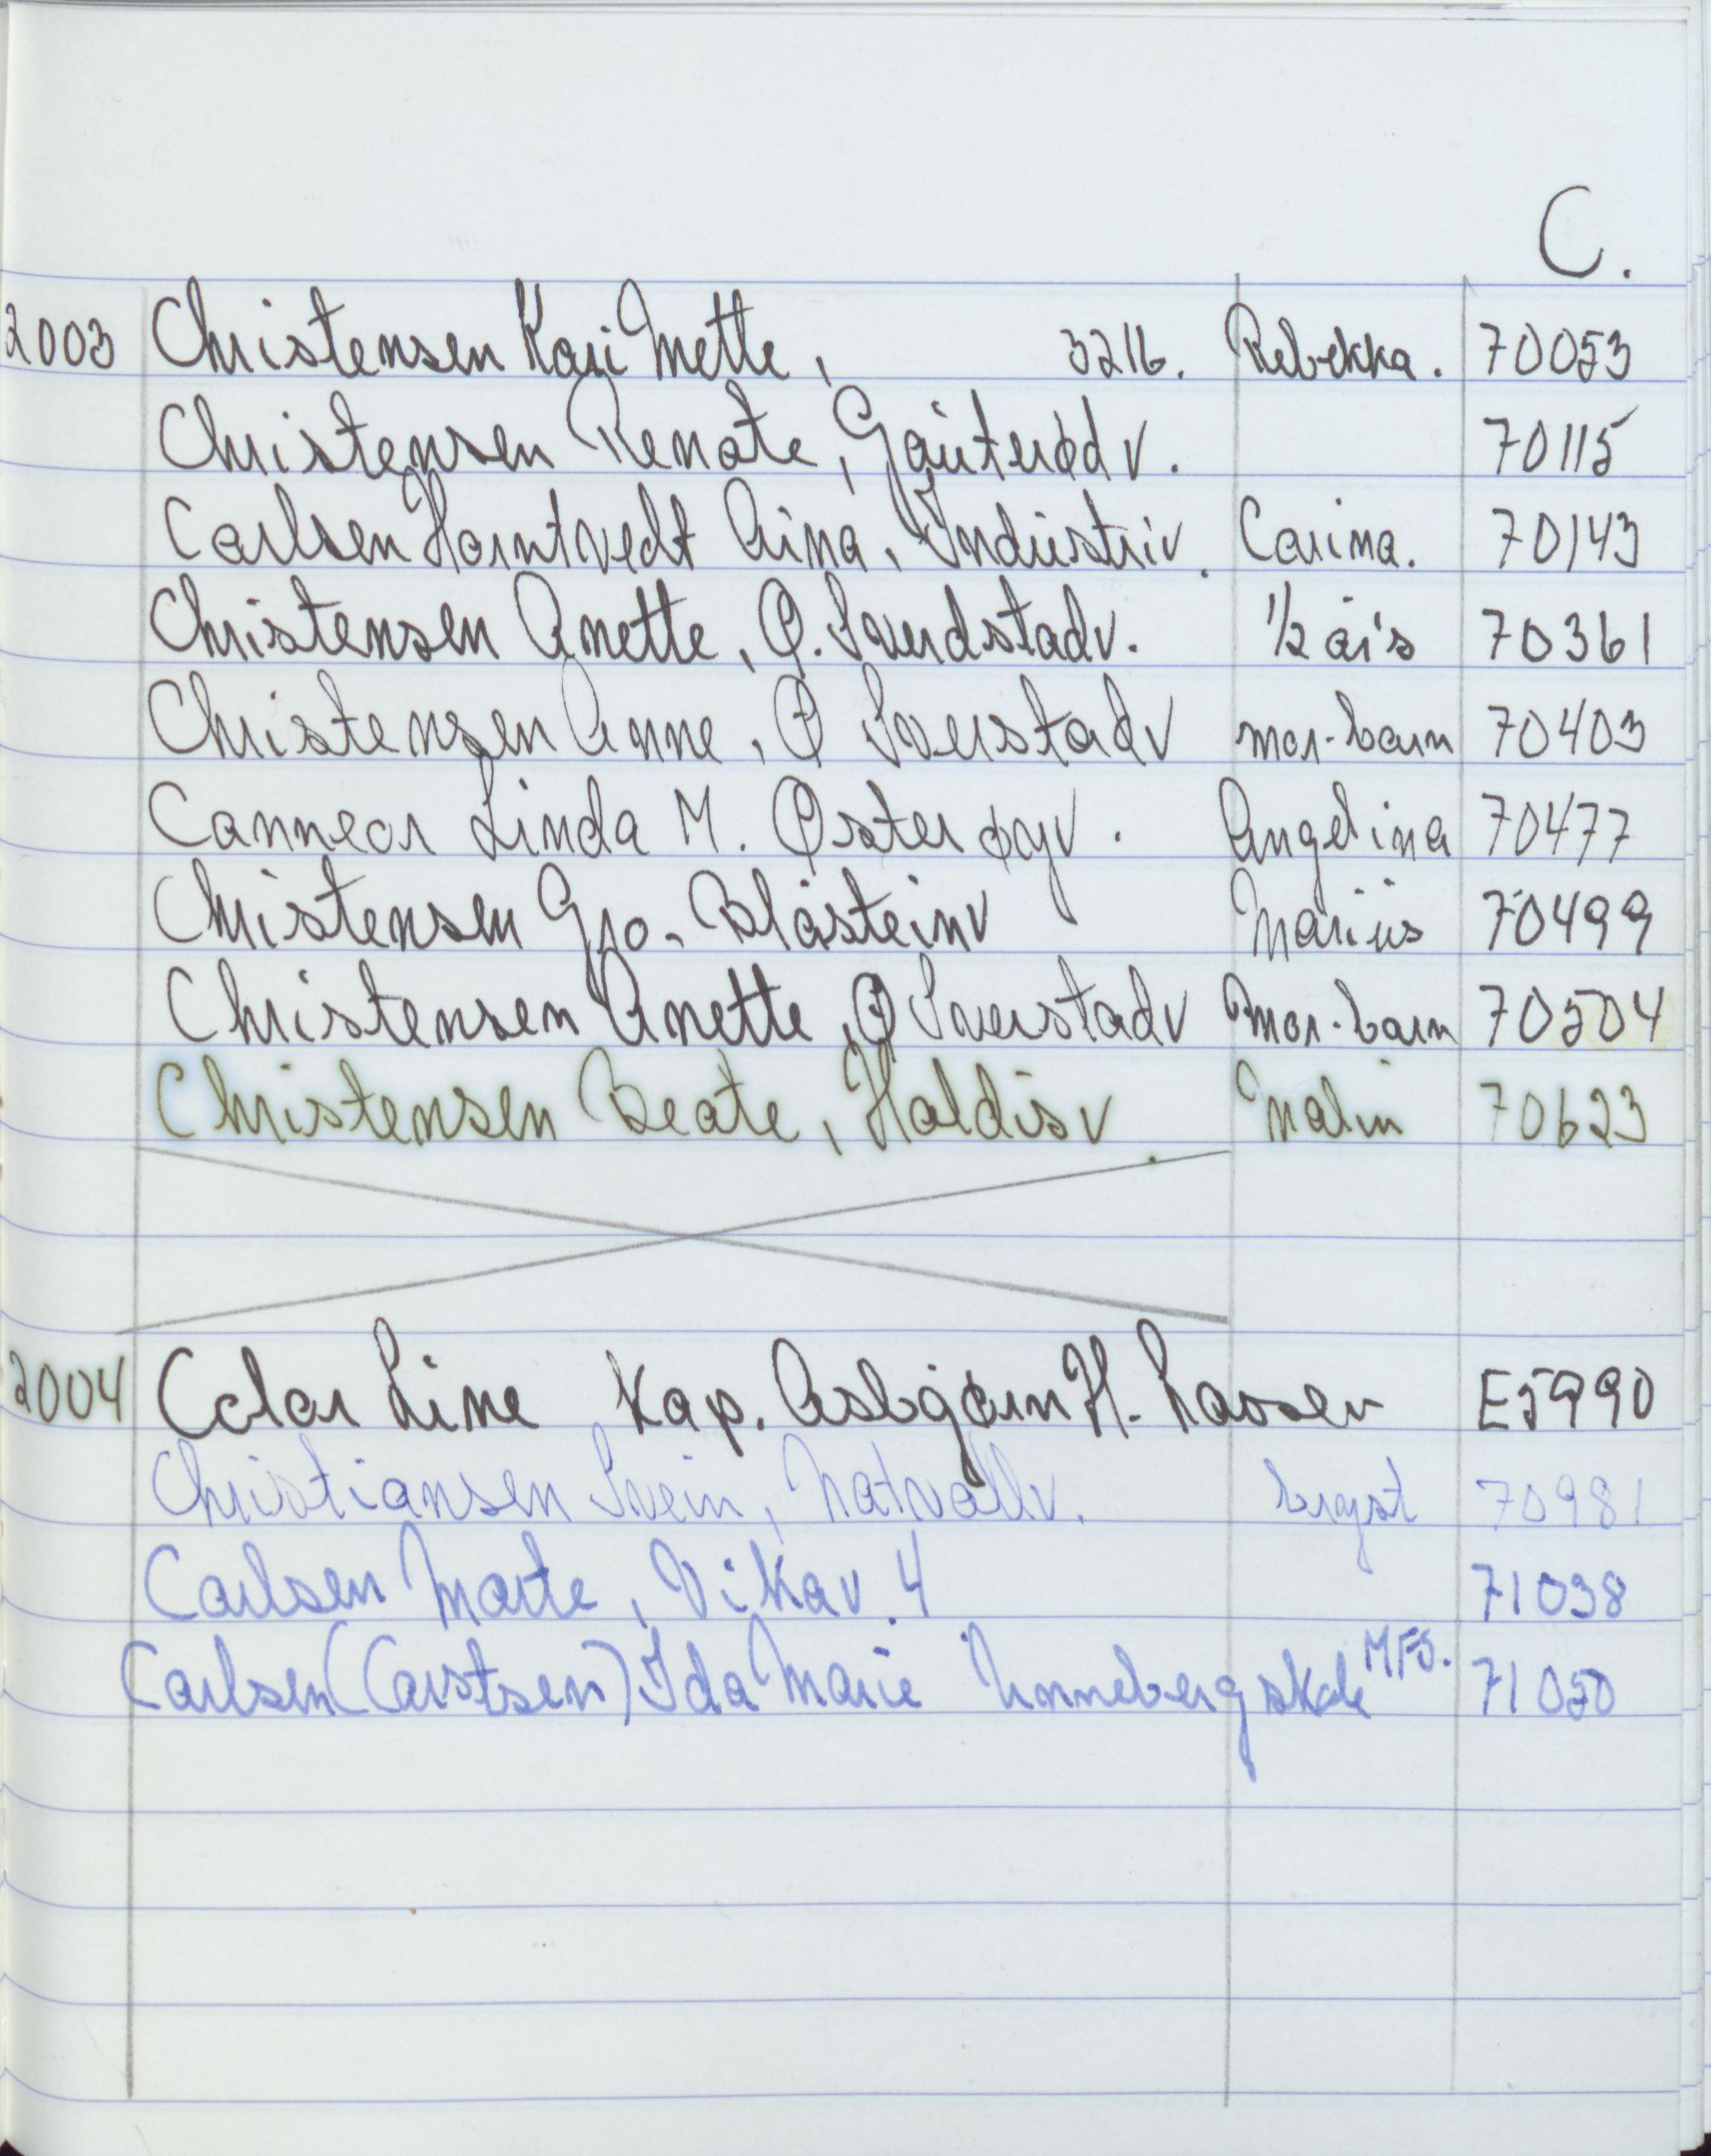 C.
2003 Christensen Kari Mette, 3216. Rebekka. 70053
Christensen Renate, Gauterødv. 70115
Carlsen Horntvedt Aina, Industriv. Carina. 70143
Christensen Anette, Ø. Sverdstadv. 1/2 års 70361
Christensen Anne, Ø Sverstadv mor-barn 70403
Cannear Linda M. Øster øyv. Angelina 70477
Christensen Gro, Blåsteinv Marius 70499
Christensen Anette, Ø Sverstadv mor-barn 70504
Christensen Beate, Haldisv. Malin 70623
2004 Color Line Kap. Asbjørn H. Lassen E5990
Christiansen Svein, Natvallv. bryst 70981
Carlsen Marte, Vikav. 4 71038
Carlsen (Carstsen) Ida Marie Unnebergskole MFS. 71050